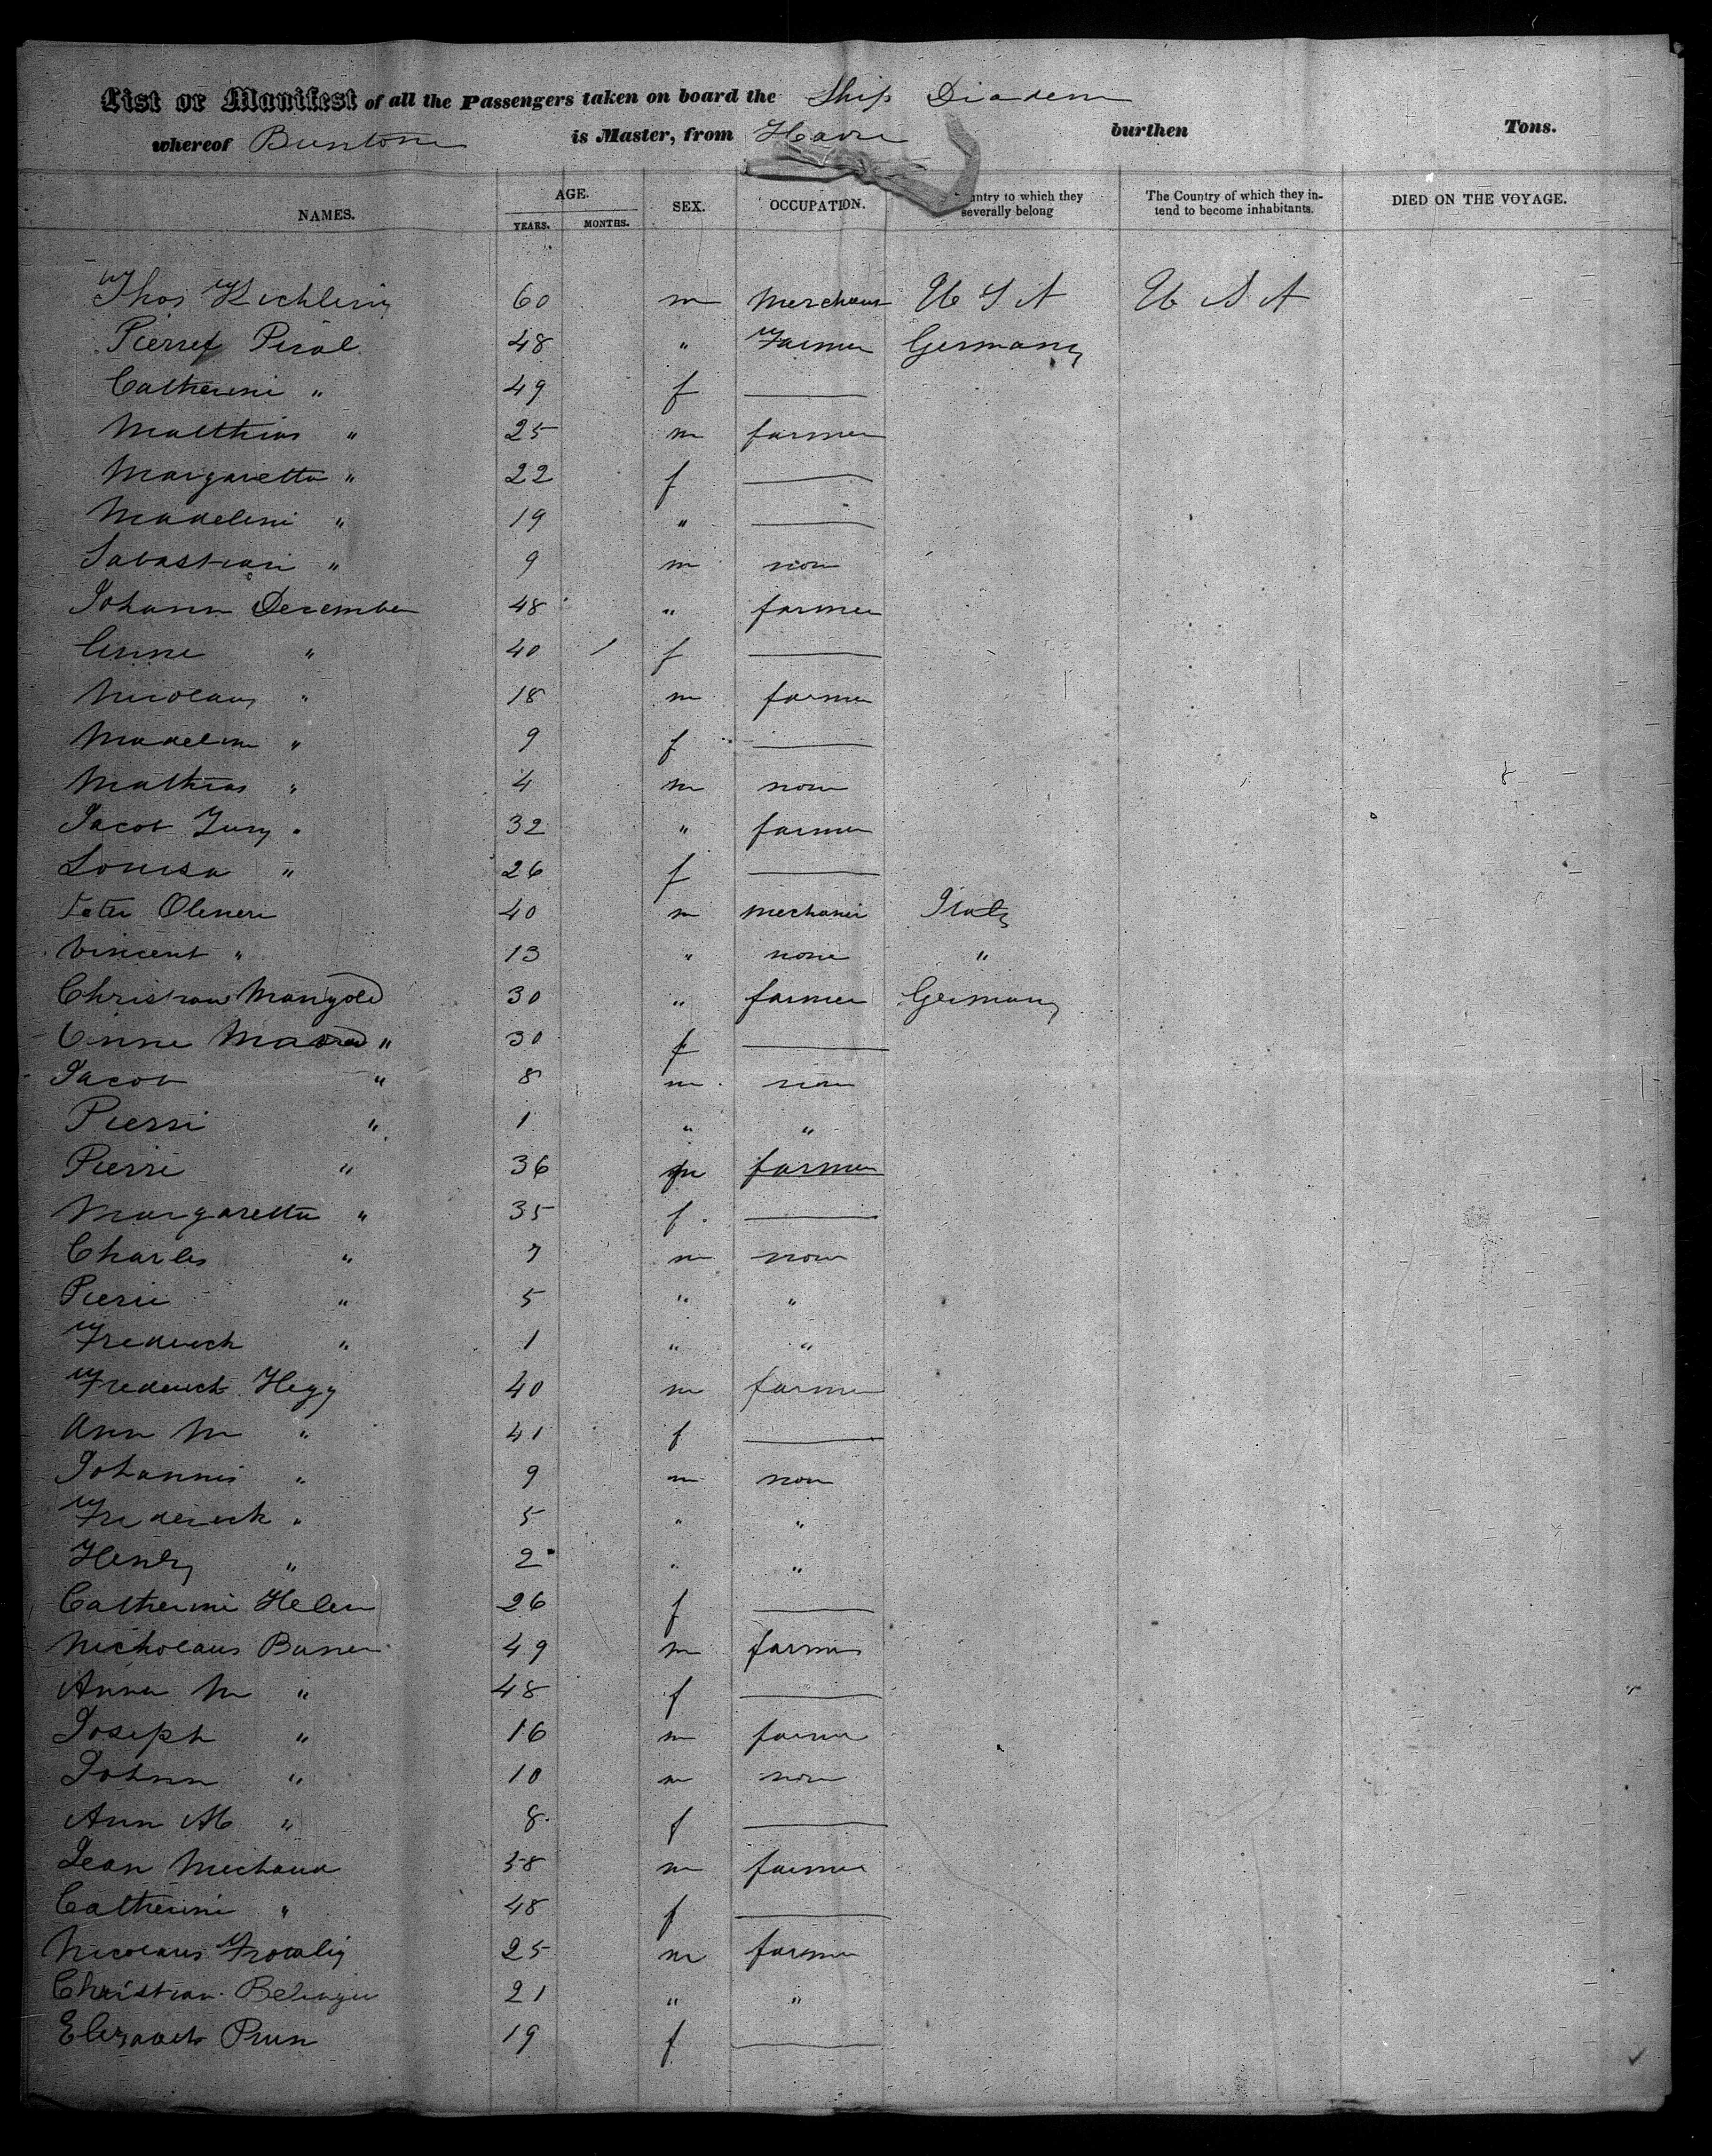 List or Manifest of all the Passengers taken on board the Ship Diadem
whereof Bunton is Master, from Havre burthen Tons.
NAMES. AGE. YEARS. MONTHS. SEX. OCCUPATION. untry to which they severally belong The Country of which they intend to become inhabitants. DIED ON THE VOYAGE.
Thos 60 m Merchant U S A U S A
Pierre Piral 48 " Farmer Germany
Catherine " 49 f
Matthias " 25 m farmer
Margaretta " 22 f
Madeline " 19 "
Sabastian " 9 m none
Johann December 48 " farmer
Anne " 40 f
Nicolaus " 18 m farmer
Madeline " 9 f
Mathias " 4 m none
Jacob Jung " 32 " farmer
Louisa " 26 f
Peter 40 m mechanic Italy
Vincent " 13 " none "
Christian Mangold 30 " farmer Germany
Anne Maria " 30 f
Jacob " 8 m none
Pierre " 1 " "
Pierre " 36 m farmer
Margaretta " 35 f
Charles " 7 m none
Pierre " 5 " "
Frederick " 1 " "
Frederick Hegy 40 m farmer
Ann M " 41 f
Johannis " 9 m none
Frederick " 5 " "
Henry " 2 " "
Catherine Helen 26 f
Nicholaus 49 m farmer
Anna M " 48 f
Joseph " 16 m farmer
Johnn " 10 m none
Ann M " 8 f
Jean Michaud 58 m farmer
Catherine " 48 f
Nicolaus 25 m farmer
Christian 21 " "
Elizabeth Prun 19 f